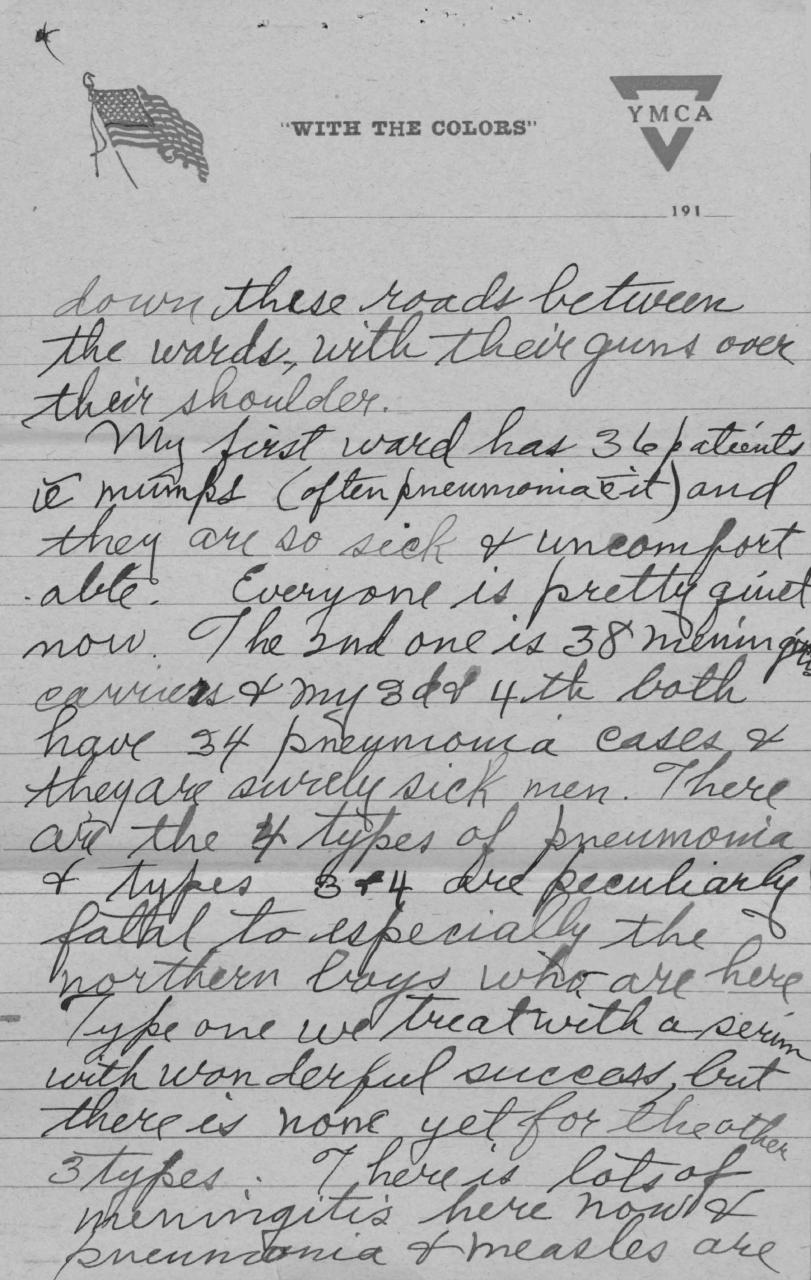 "WITH THE COLORS"
YMCA
191
down these roads between
the wards, with their guns over
their shoulder.
My first ward has 36 patients
c̄ mumps (often pneumonia c̄ it) and
they are so sick & uncomfort
able. Everyone is pretty quiet
now. The 2nd one is 38 meningitis
carriers & my 3d & 4th both
have 34 pneumonia cases &
they are surely sick men. There
are the 4 types of pneumonia
& types 3 + 4 are peculiarly
fatal to especially the
northern boys who are here
Type one we treat with a serim
with wonderful success, but
there is none yet for the other
3 types. There is lots of
meningitis here now &
pneumonia & measles are